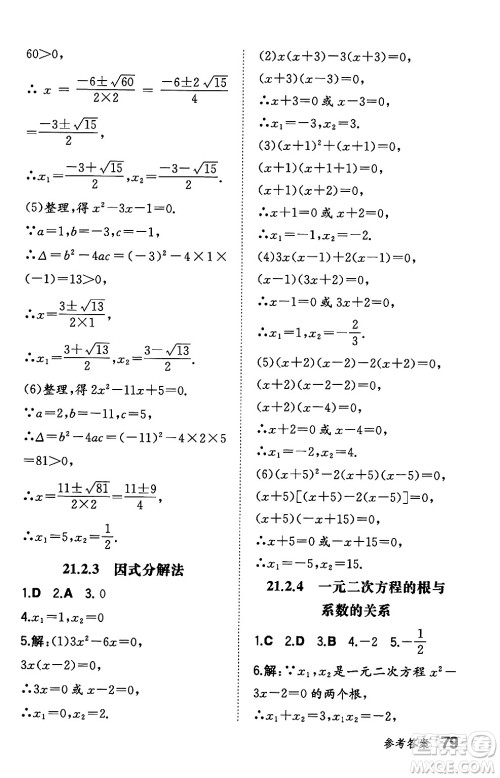 60>0,
∴x=(-6±√60)/(2×2)=(-6±2√15)/4
=(-3±√15)/2,
∴x₁=(-3+√15)/2,x₂=(-3-√15)/2.
(5)整理,得 x²-3x-1=0.
∵a=1,b=-3,c=-1,
∴Δ=b²-4ac=(-3)²-4×1×
(-1)=13>0,
∴x=(3±√13)/(2×1),
∴x₁=(3+√13)/2,x₂=(3-√13)/2.
(6)整理,得 2x²-11x+5=0.
∵a=2,b=-11,c=5,
∴Δ=b²-4ac=(-11)²-4×2×5
=81>0,
∴x=(11±√81)/(2×2)=(11±9)/4,
∴x₁=5,x₂=1/2.
21.2.3 因式分解法
1.D 2.A 3.0
4.x₁=1,x₂=0
5.解:(1)3x²-6x=0,
3x(x-2)=0,
∴3x=0或x-2=0,
∴x₁=0,x₂=2.
(2)x(x+3)-3(x+3)=0,
(x+3)(x-3)=0,
∴x+3=0或x-3=0,
∴x₁=-3,x₂=3.
(3)(x+1)²+(x+1)=0,
(x+1)(x+1+1)=0,
∴x+1=0或x+2=0,
∴x₁=-1,x₂=-2.
(4)3x(x-1)+2(x-1)=0,
(x-1)(3x+2)=0,
∴x-1=0或3x+2=0,
∴x₁=1,x₂=-2/3.
(5)(x+2)(x+1-3)=0,
(x+2)(x-2)=0,
∴x+2=0或x-2=0,
∴x₁=-2,x₂=2.
(6)(x+5)²-2(x+5)(x-2)=0,
(x+5)[(x+5)-2(x-2)]=0,
(x+5)(9-x)=0,
∴x+5=0或9-x=0,
∴x₁=-5,x₂=9.
21.2.4 一元二次方程的根与
系数的关系
1.C 2.D 3.B 4.-2 5.-1/2
6.解:∵x₁,x₂是一元二次方程x²-
3x-2=0的两个根,
参考答案 79